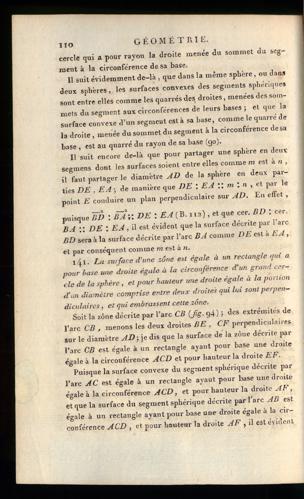 110 GÉOMÉTRIE.
cercle qui a pour rayon la droite menée du sommet du seg-
ment à la circonférence de sa base.
Il suit évidemment de-là, que dans la même sphère, ou dans
deux sphères, les surfaces convexes des segments sphériques
sont entre elles comme les quarrés des droites, menées des som-
mets du segment aux circonférences de leurs bases; et que la
surface convexe d'un segment est à sa base, comme le quarré de
la droite, menée du sommet du segment à la circonférence de sa
base, est au quarré du rayon de sa base (90).
Il suit encore de-là que pour partager une sphère en deux
segmens dont les surfaces soient entre elles comme m est à n,
il faut partager le diamètre AD de la sphère en deux par-
ties DE, EA; de manière que DE : EA :: m : n, et par le
point E conduire un plan perpendiculaire sur AD. En effet,
puisque BD : BA :: DE : EA (B. 112), et que cer. BD : cer.
BA :: DE : EA, il est évident que la surface décrite par l'arc
BD sera à la surface décrite par l'arc BA comme DE est à EA,
et par conséquent comme m est à n.
141. La surface d'une zône est égale à un rectangle qui a
pour base une droite égale à la circonférence d'un grand cer-
cle de la sphère, et pour hauteur une droite égale à la portion
d'un diamètre comprise entre deux droites qui lui sont perpen-
diculaires, et qui embrassent cette zône.
Soit la zône décrite par l'arc CB (fig. 94); des extrémités de
l'arc CB, menons les deux droites BE, CF perpendiculaires
sur le diamètre AD; je dis que la surface de la zône décrite par
l'arc CB est égale à un rectangle ayant pour base une droite
égale à la circonférence ACD et pour hauteur la droite EF.
Puisque la surface convexe du segment sphérique décrite par
l'arc AC est égale à un rectangle ayant pour base une droite
égale à la circonférence ACD, et pour hauteur la droite AF,
et que la surface du segment sphérique décrite par l'arc AB est
égale à un rectangle ayant pour base une droite égale à la cir-
conférence ACD, et pour hauteur la droite AF, il est évident